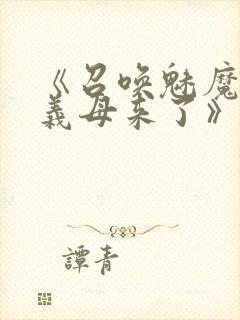 《召喚魅魔
義母来了》
譚青